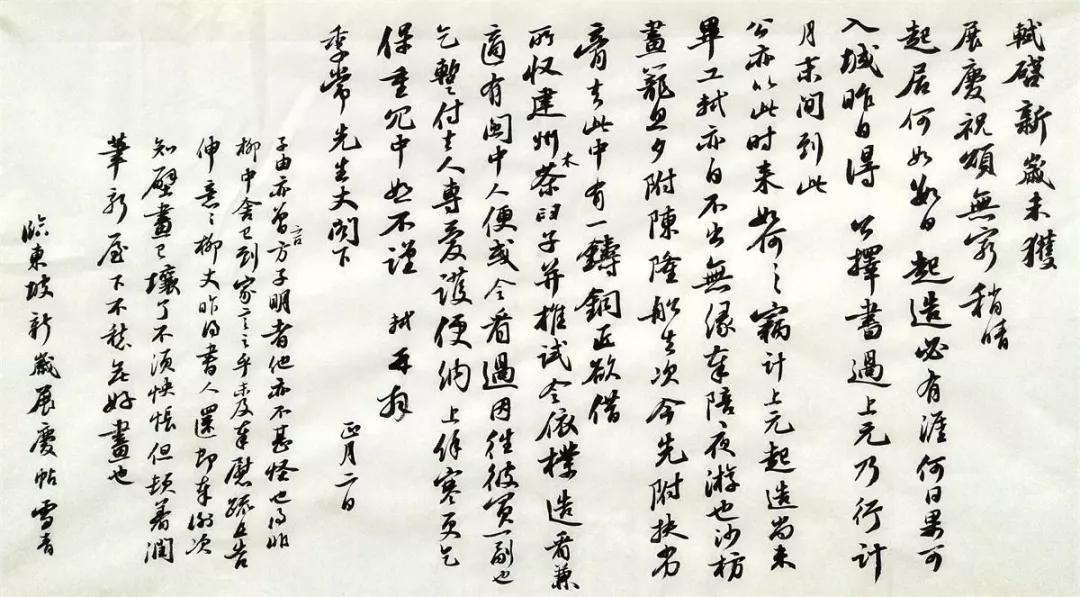 軾啓新歲未獲
展慶祝頌無窮稍晴
起居何如數日起造必有涯何日果可
入城昨日得公擇書過上元乃行計
月末間到此
公亦以此时来如何〻竊计上元起造尚未
畢工軾亦自不出無緣奉陪夜遊也沙枋
畫籠旦夕附陳隆船去次今先附扶劣
膏去此中有一鑄銅匠欲借
所收建州木茶臼子并椎試令依樣造看兼
適有閩中人便或令看過因往彼買一副也
乞暫付去人專愛護便納上餘寒更乞
保重冗中恕不謹軾再拜
季常先生丈閣下
正月二日
子由亦曾言方子明者他亦不甚怪也得非
柳中舍已到家言之乎未及奉慰疏且告
伸意〻柳丈昨得書人還即奉謝次
知壁畫已壞了不須怏悵但頓著潤
筆新屋下不愁無好畫也
臨東坡新歲展慶帖雪青